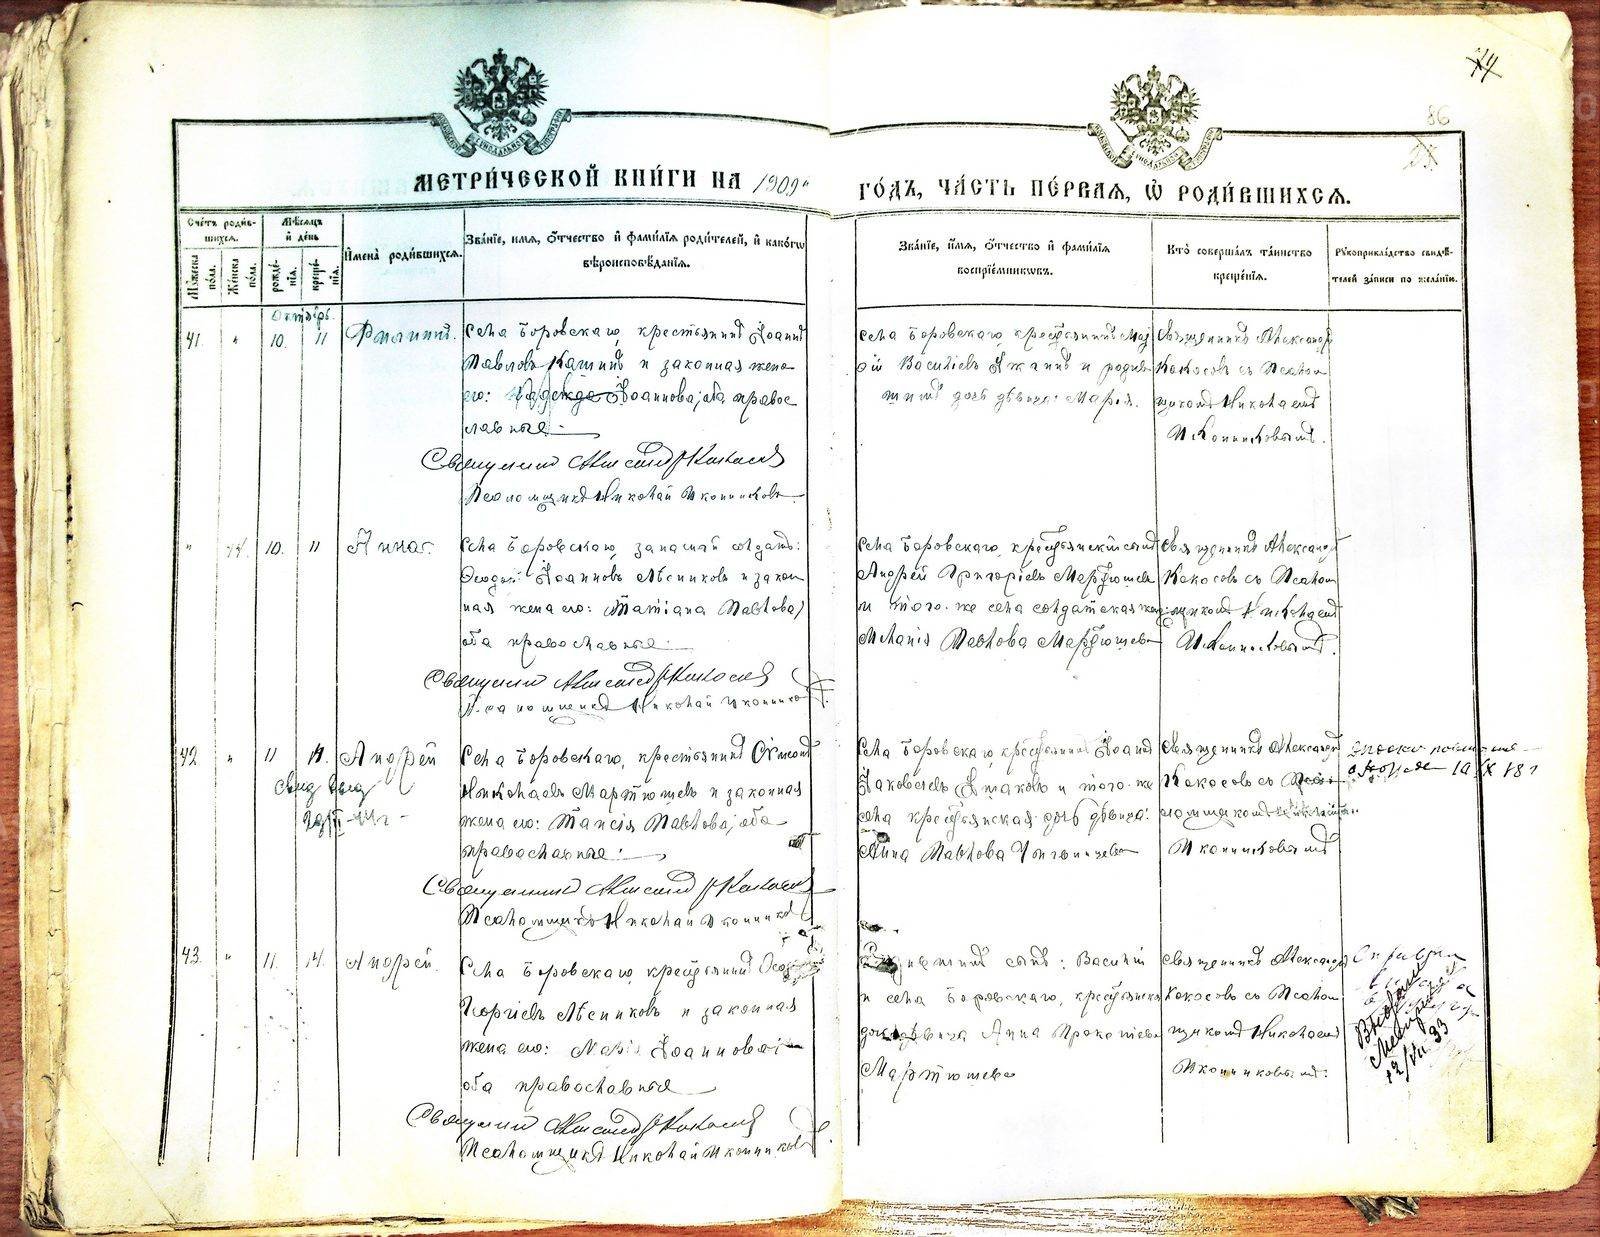 74
86
МЕТРИ́ЧЕСКОЙ КНИ́ГИ НА 1909
ГО́ДЪ, ЧА́СТЬ ПЕ́РВАЯ, Ѡ РОДИ́ВШИХСЯ.
Сче́тъ роди́в-
шихся.
Мѣ́сяцъ
и́ де́нь
И҆мена̀ роди́вшихся.
Зва́нїе, и҆́мя, ѻ҆́тчество и҆ фами́лїя роди́телей, и҆ како́гѡ
вѣроисповѣ́данїя.
Му́жеска
по́ла.
Же́нска
по́ла.
рожде́-
нїя.
креще́-
нїя.
Зва́нїе, и҆́мя, ѻ҆́тчество и҆ фами́лїя
воспрїе́мниковъ.
Кто̀ соверша́лъ та́инство
креще́нїя.
Рꙋкоприкла́дство свидѣ́-
телей за́писи по жела́нїю.
Октябрь
41. " 10. 11 Филиппъ.
Села Боровскаго, крестьянинъ Іоаннъ
Павловъ Кашинъ и законная жена
его: Надежда Іоаннова; оба право-
славные.
Священникъ Александръ Кокосовъ
Псаломщикъ Николай Иконниковъ
Села Боровскаго, крестьянинъ
Василіевъ и роди-
дочь дѣвица: Марія.
Священникъ Александръ
Кокосовъ съ Псалом-
щикомъ Николаемъ
Иконниковымъ.
" 44. 10. 11 Анна.
Села Боровскаго, запасный солдатъ:
Ѳеодоръ Іоанновъ Лѣсниковъ и закон-
ная жена его: Татіана Павлова,
оба православные.
Священникъ Александръ Кокосовъ
Псаломщикъ Николай Иконниковъ
Села Боровскаго, крестьянскій сынъ
Андрей Григоріевъ Мартюшевъ
и того-же села солдатская жена:
Меланія Павлова Мартюшева
Священникъ Александръ
Кокосовъ съ Псалом-
щикомъ Николаемъ
Иконниковымъ.
42 " 11 11. Андрей
Села Боровскаго, крестьянинъ
Николаевъ Мартюшевъ и законная
жена его: Таисія Павлова; оба
православные.
Священникъ Александръ Кокосовъ
Псаломщикъ Николай Иконниковъ
Села Боровскаго, крестьянинъ Іоаннъ
Іаковлевъ и того-же
села крестьянская дочь дѣвица:
Анна Павлова
Священникъ Александръ
Кокосовъ съ Пса-
ломщикомъ Николаемъ
Иконниковымъ
43. " 11. 14. Андрей.
Села Боровскаго, крестьянинъ
Георгіевъ Лѣсниковъ и законная
жена его: Марія Іоаннова;
оба православные
Священникъ Александръ Кокосовъ
Псаломщикъ Николай Иконниковъ
сынъ: Василій
и села Боровскаго, крестьянская
дочь дѣвица Анна Прокопіева
Мартюшева
Священникъ Александръ
Кокосовъ съ Псалом-
щикомъ Николаемъ
Иконниковымъ.
Справка
Выдана
Метрика
12/VII 33